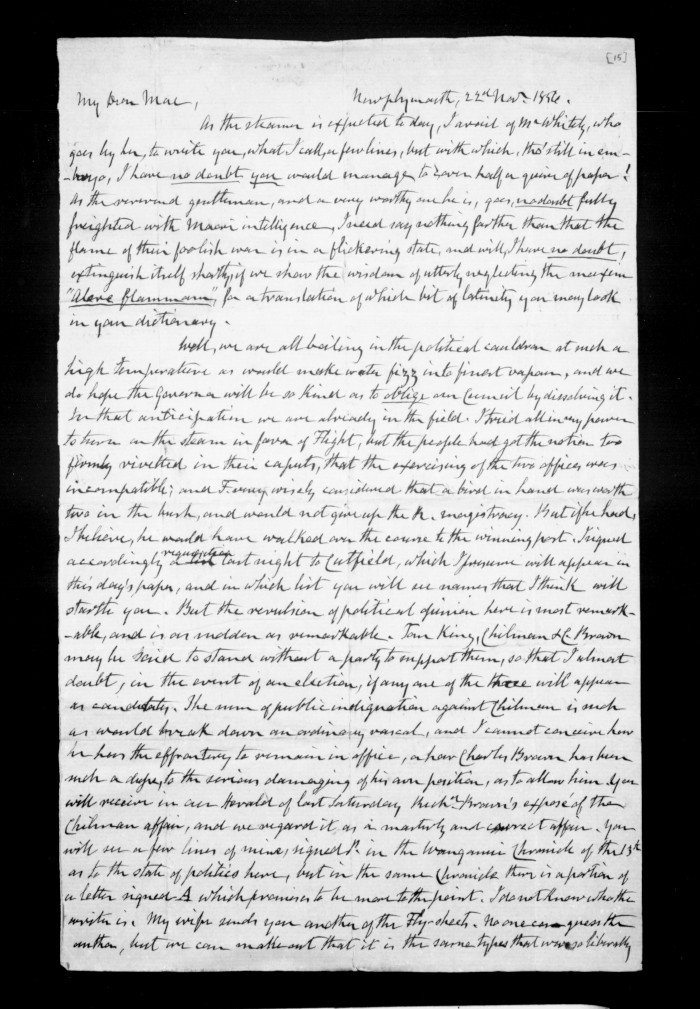 [15]
My Dear Mac, Newplymouth, 22nd Novr. 1856.
As the steamer is expected today, I avail of Mr Whitely, who
goes by her, to write you, what I call, a few lines, but with which, tho' still in em-
-bryo, I have no doubt you would manage to cover half a quire of paper!
As the reverend gentleman, and a very worthy one he is, goes, no doubt fully
freighted with Maori intelligence, I need say nothing farther than that the
flame of their foolish war is in a flickering state, and will, I have no doubt,
extinguish itself shortly, if we show the wisdom of utterly neglecting the maxim
"Alere flammam", for a translation of which bit of latinity you may look
in your dictionary.
Well, we are all boiling in the political cauldron at such a
high temperature as would make water fizz into finest vapour, and we
do hope the Governor will be so kind as to oblige our Council by dissolving it.
In that anticipation we are already in the field. I tried all in my power
to turn on the steam in favor of Flight, but the people had got the notion too
firmly rivetted in their caputs, that the exercising of the two offices was
incompatible; and F. very wisely considered that a bird in hand was worth
two in the bush, and would not give up the R. magistracy. But if he had,
I believe, he would have walked over the course to the winning post. I signed
accordingly a requisition last night to Cutfield, which I presume will appear in
this day's paper, and in which list you will see names that I think will
startle you. But the revulsion of political opinion here is most remark-
-able, and is as sudden as remarkable. Tom King, Chilman & C. Brown
may be said to stand without a party to support them, so that I almost
doubt, in the event of an election, if any one of the three will appear
as candidates. The sum of public indignation against Chilman is such
as would break down an ordinary rascal, and I cannot conceive how
he has the effrontery to remain in office, or how Charles Brown has been
such a dupe, to the serious damaging of his own position, as to allow him. You
will receive in our Herald of last Saturday Richd. Brown's exposé of the
Chilman affair, and we regard it, as a masterly and correct affair. You
will see a few lines of mine, signed P. in the Wanganui Chronicle of the 13th
as to the state of politics here, but in the same Chronicle there is a portion of
a letter signed A which promises to be more to the point. I do not know who the
writer is. My wife sends you another of the Fly-sheets. No one can guess the
author, but we can make out that it is the same types that were so liberally